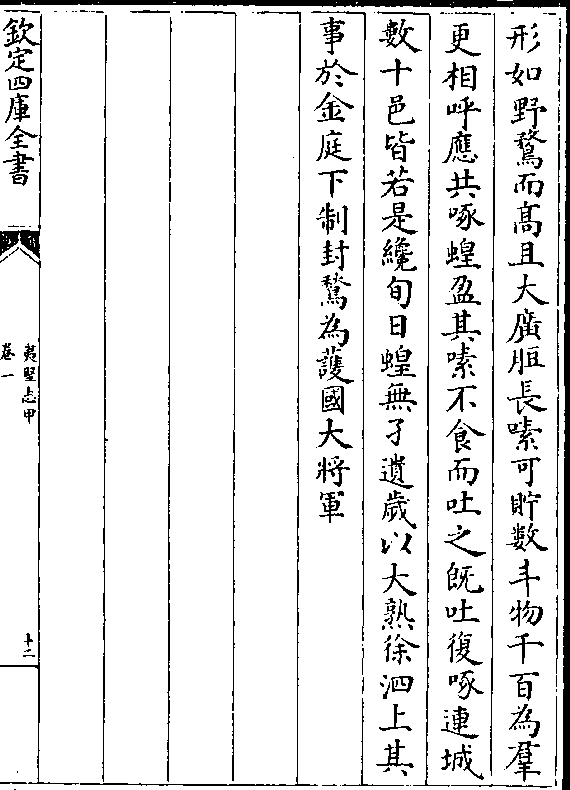 形如野鶖而髙且大廣脰長嗉可貯數斗物千百為羣
更相呼應共啄蝗盈其嗉不食而吐之既吐復啄連城
數十邑皆若是纔旬日蝗無孑遺歲以大熟徐泗上其
事於金庭下制封鶖為護國大將軍
欽定四庫全書
夷堅志甲
卷一
十二